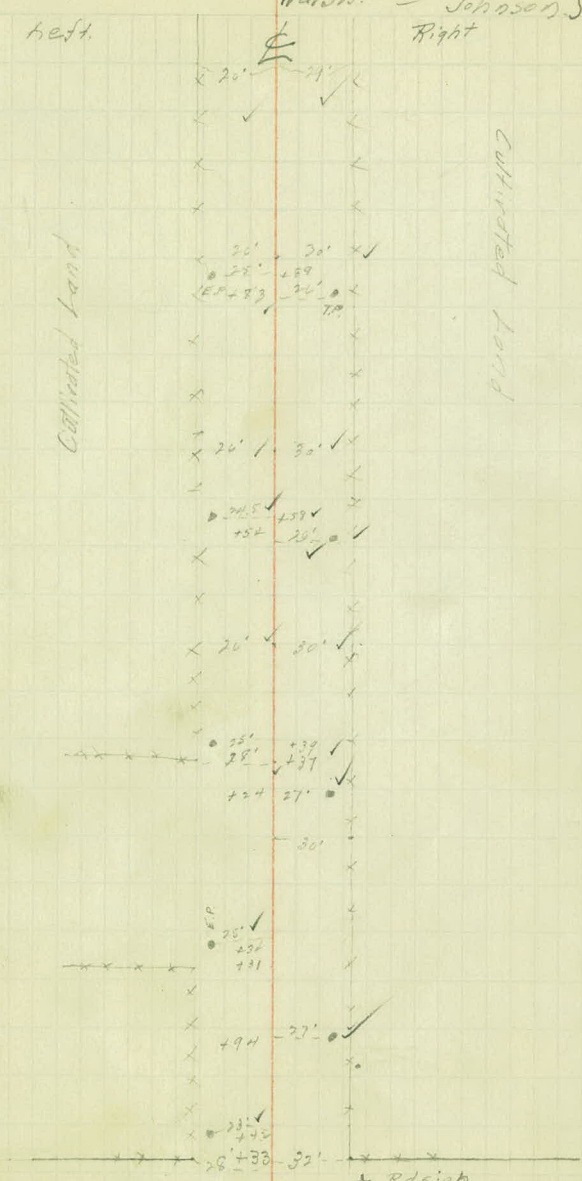 Johnson.
Left. ℄ Right
Cultivated Land
Cultivated Land
26' 30'
25' +89
E.P. +83 26'
T.P.
26' 30'
24.5 +59
+52 28'
30'
25' +39
28' +37
+24 27'
30'
E.P.
25'
+31
+94 27'
28' +33 32'